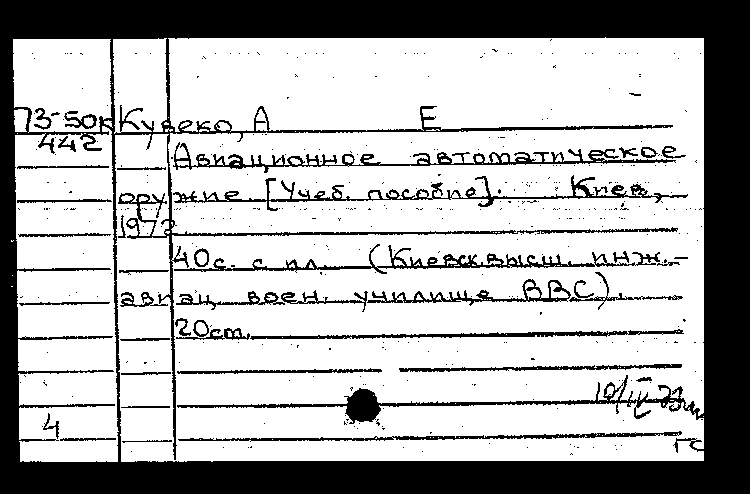 73-50к Кувеко, А Е
442
Авиационное автоматическое
оружие [Учеб. пособие]. Киев,
1972.
40с. с ил. (Киевск. высш. инж.-
авиац. воен. училище ВВС).
20см.
4
ГС